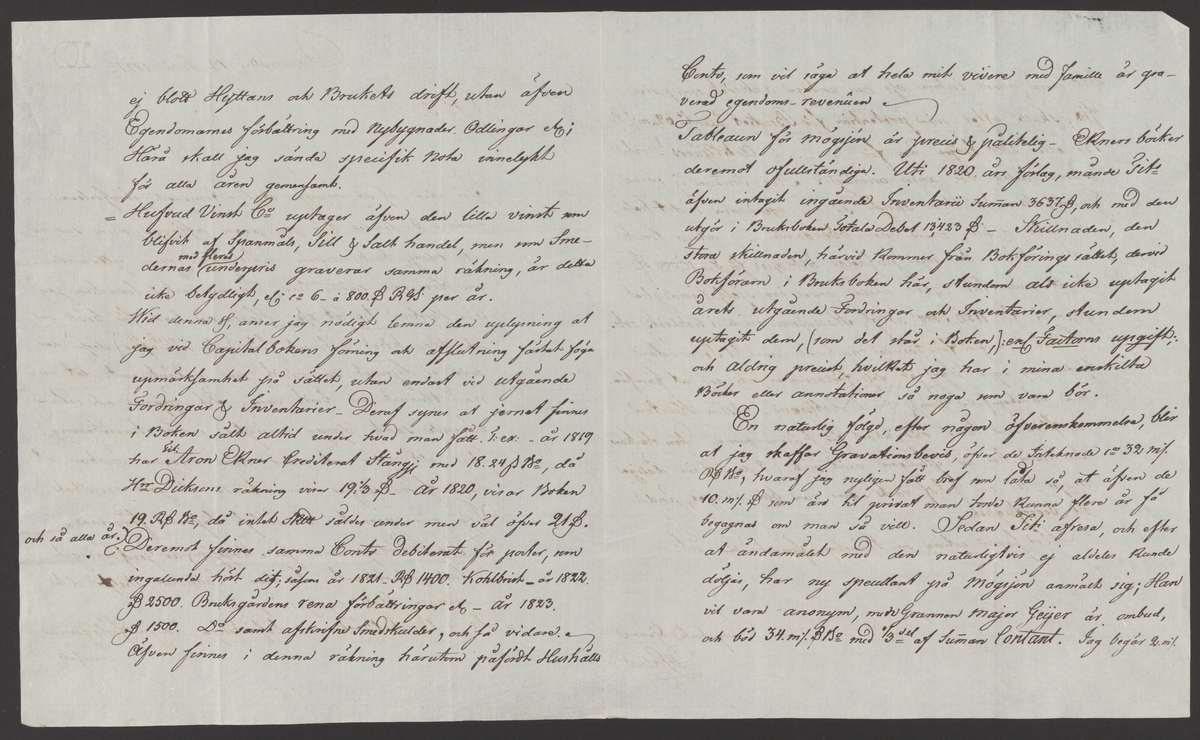 ej blott Hyttans och Brukets drift, utan äfven
Egendomarnes förbättring med Nybygnader. Odlingar &c;
Härå skall jag sända specifik Nota innelykt
för alla åren gemensamt.
= Hufvud Vinst Co uptager äfven den lilla vinst som
blifvit af Spanmåls, Sill & Salt handel, men som Sme-
dernas med fleres underpris graverar samma räkning, är detta
icke betydligt, &c ca 6- à 800. R$ RGS per år.
Wid denna §, anser jag nödigt lemna den uplysning at
jag vid Capitalbokens förning och afslutning fästat föga
upmärksamhet på sättet, utan endast vid utgående
Fordringar & Inventarier - Deraf synes at jernet finnes
i Boken sålt altid under hvad man fått. t: ex: - år 1819
har Aron Ekner Crediterat Stångj med 18.24 ß Bo, då
Hrr Dicksons räkning visar 19 1/3 $ - År 1820, visar Boken
19. R$ Bo, då intet såldes under men väl öfver 21 $.
och så alla år.
Deremot finnes samma Conto debiterat för poster, som
ingalunda hört dit; såsom år 1821 - R$ 1400. Kohlbrist - år 1822.
$ 2500. Bruksgårdens rena förbättringar &c - År 1823.
$ 1500. Do samt afskrifne Smedskulder, och så vidare.
Äfven finnes i denna räkning härutom påfördt Hushålls
Conto, som vil säga at hela mit vivere med famille är gra-
verad egendoms-revenüen
Tableaun för Mögsjön är precis & pålitelig - Ekners böcker
deremot ofullständiga. Uti 1820. års förlag, månde
äfven intagit ingående Inventarie Summan 3637 $, och med den
utgör i Bruksboken Totala Debet 13,423 $ - Skillnaden, den
stora skillnaden, härvid kommer från Bokförings sättet, dervid
Bokföraren i Bruksboken här, stundom als icke uptagit
årets utgående Fordringar och Inventarier, stundom
uptagit dem, (som det står i Boken,) :enl Factorns upgift:
och Aldrig precist, hvilket jag har i mina enskilta
Böcker eller annotationer så noga som vara bör.
En naturlig följd, efter någon öfverenskommelse, blir
at jag skaffar Gravationsbevis, öfver de Inteknade ca 32 m/.
R$ Bo, hvaraf jag nyligen fått bref som låta så, at äfven de
10. m/. $ som äro til privat man torde kunna flere år få
begagnas om man så vill. Sedan afresa, och efter
at ändamålet med den naturligtvis ej aldeles kunde
döljas, har ny speculant på Mögsjön anmält sig; Han
vil vara anonym, men Grannen Major Geijer är ombud,
och böd 34. m/. $ Bo med 1/3 del af Summan Contant. Jag begär 2. m/.